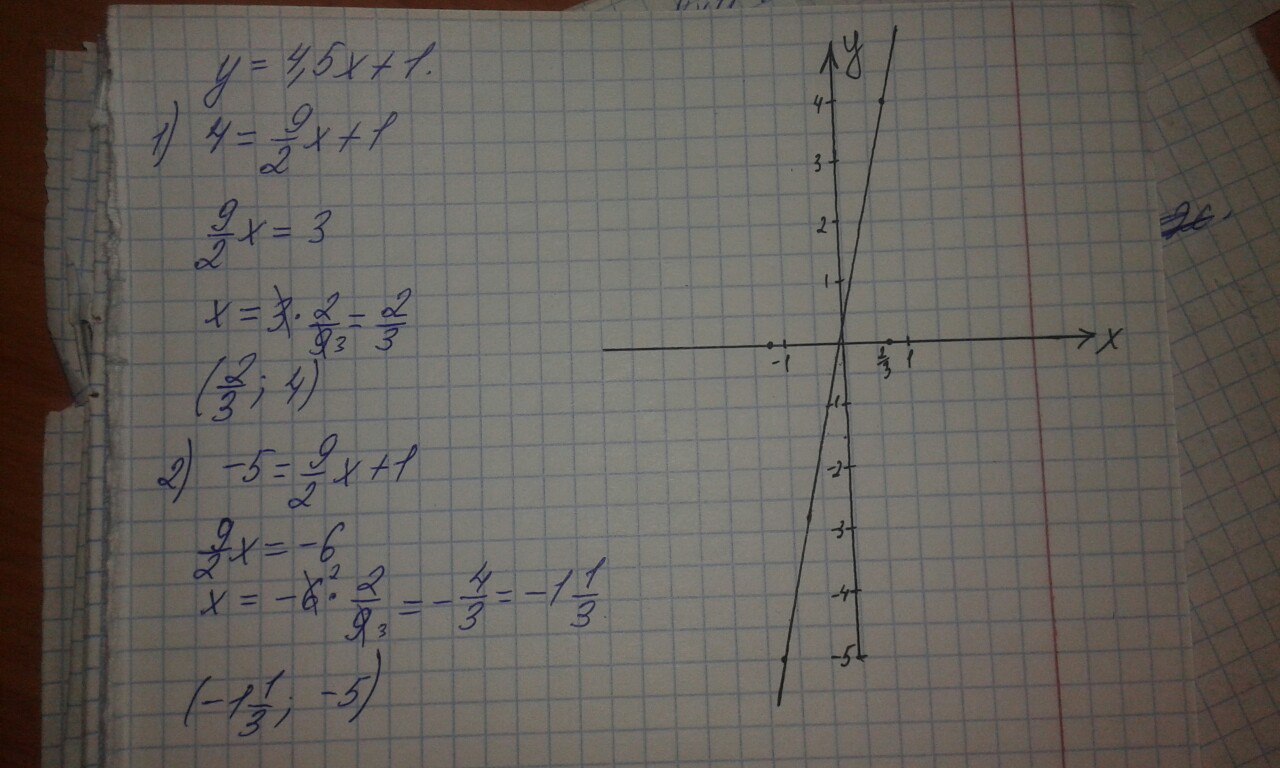 y = 4,5x + 1.
1) 4 = 9/2 x + 1
9/2 x = 3
x = 3 · 2/9 3 = 2/3
(2/3; 4)
2) -5 = 9/2 x + 1
9/2 x = -6
x = -6 2 · 2/9 3 = -4/3 = -1 1/3
(-1 1/3; -5)
y
4
3
2
1
-1 2/3 1 x
-1
-2
-3
-4
-5